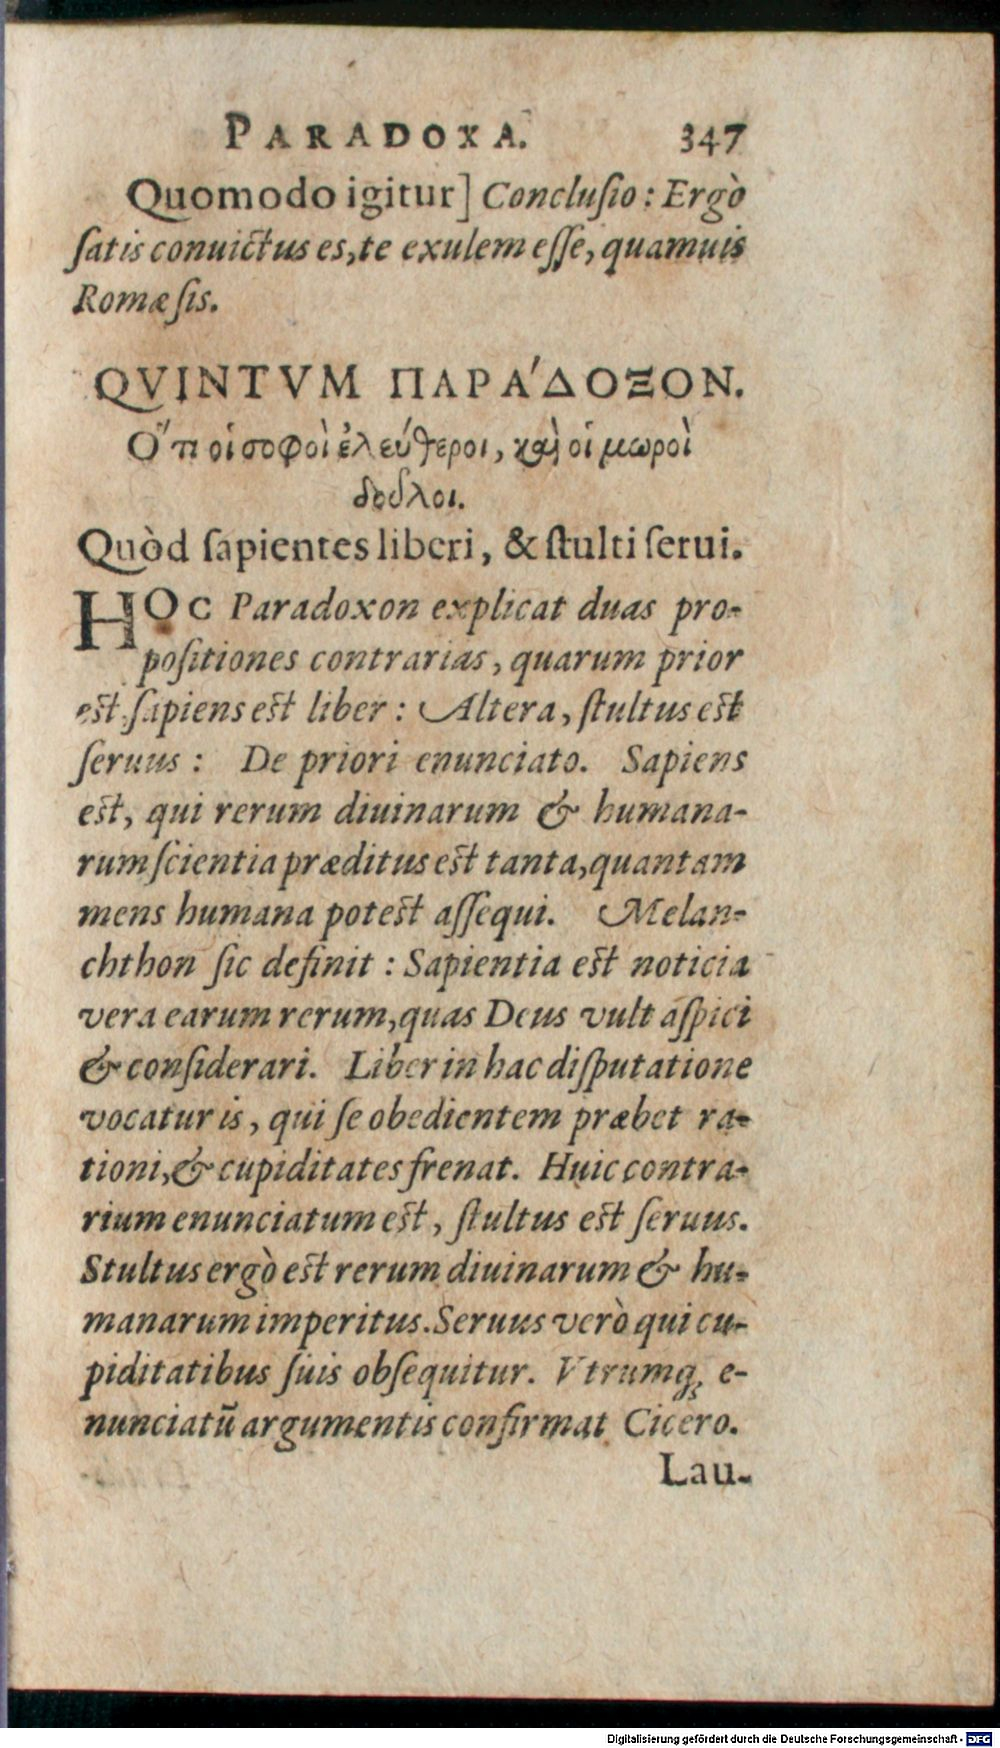 PARADOXA. 347
Quomodo igitur] Concluſio: Ergò
ſatis conuictus es, te exulem eſſe, quamuis
Romæ ſis.
QVINTVM ΠΑΡΑ΄ΔΟΞΟΝ.
Ο῞τι οἱ σοφοὶ ἐλεύθεροι, καὶ οἱ μωροὶ
δοῦλοι.
Quòd ſapientes liberi, & ſtulti ſerui.
HOC Paradoxon explicat duas pro-
poſitiones contrarias, quarum prior
est, ſapiens est liber: Altera, ſtultus est
ſeruus: De priori enunciato. Sapiens
est, qui rerum diuinarum & humana-
rum ſcientia præditus est tanta, quantam
mens humana potest aſſequi. Melan-
chthon ſic definit: Sapientia est noticia
vera earum rerum, quas Deus vult aſpici
& conſiderari. Liber in hac diſputatione
vocatur is, qui ſe obedientem præbet ra-
tioni, & cupiditates frenat. Huic contra-
rium enunciatum est, ſtultus est ſeruus.
Stultus ergò est rerum diuinarum & hu-
manarum imperitus. Seruus verò qui cu-
piditatibus ſuis obſequitur. Vtrumq́; e-
nunciatũ argumentis confirmat Cicero.
Lau-
Digitalisierung gefördert durch die Deutsche Forschungsgemeinschaft - DFG